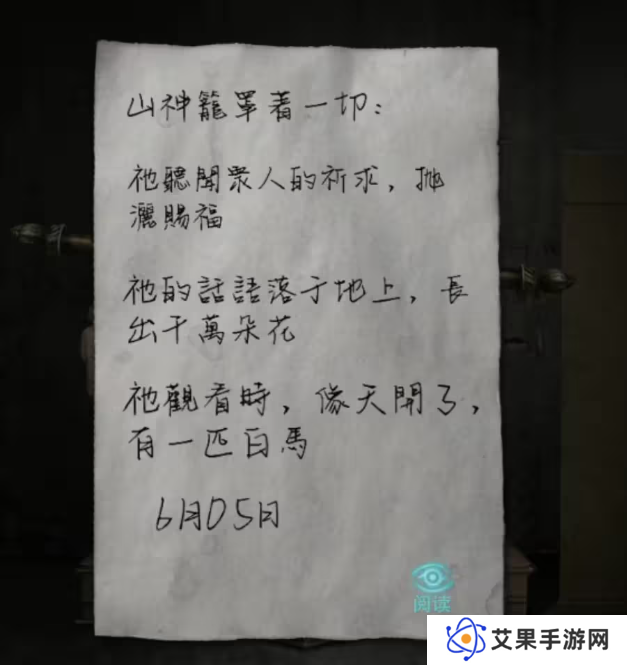 山神籠罩着一切：
祂聽聞眾人的祈求，拋
灑賜福
祂的話語落于地上，長
出千萬朵花
祂觀看時，像天開了，
有一匹白馬
6月05日
阅读
艾果手游网